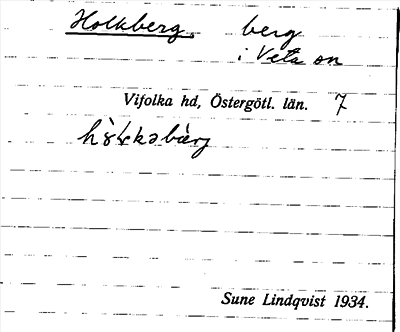 Holkberg. berg
i Veta sn
Vifolka hd, Östergötl. län. 7
Sune Lindqvist 1934.